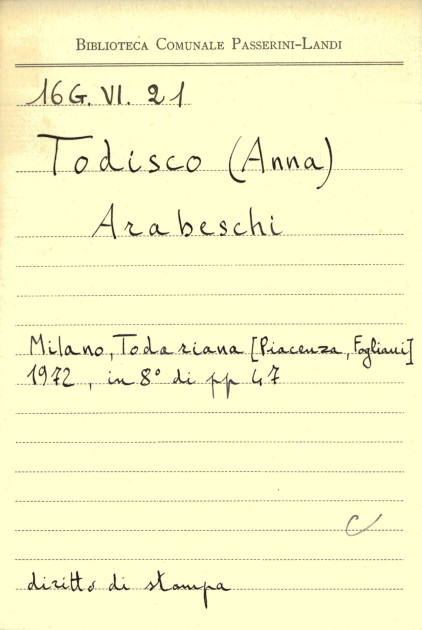 BIBLIOTECA COMUNALE PASSERINI-LANDI
16G. VI. 21
Todisco (Anna)
Arabeschi
Milano, Todariana [Piacenza, Fogliani]
1972, in 8° di pp 47
C
diritto di stampa